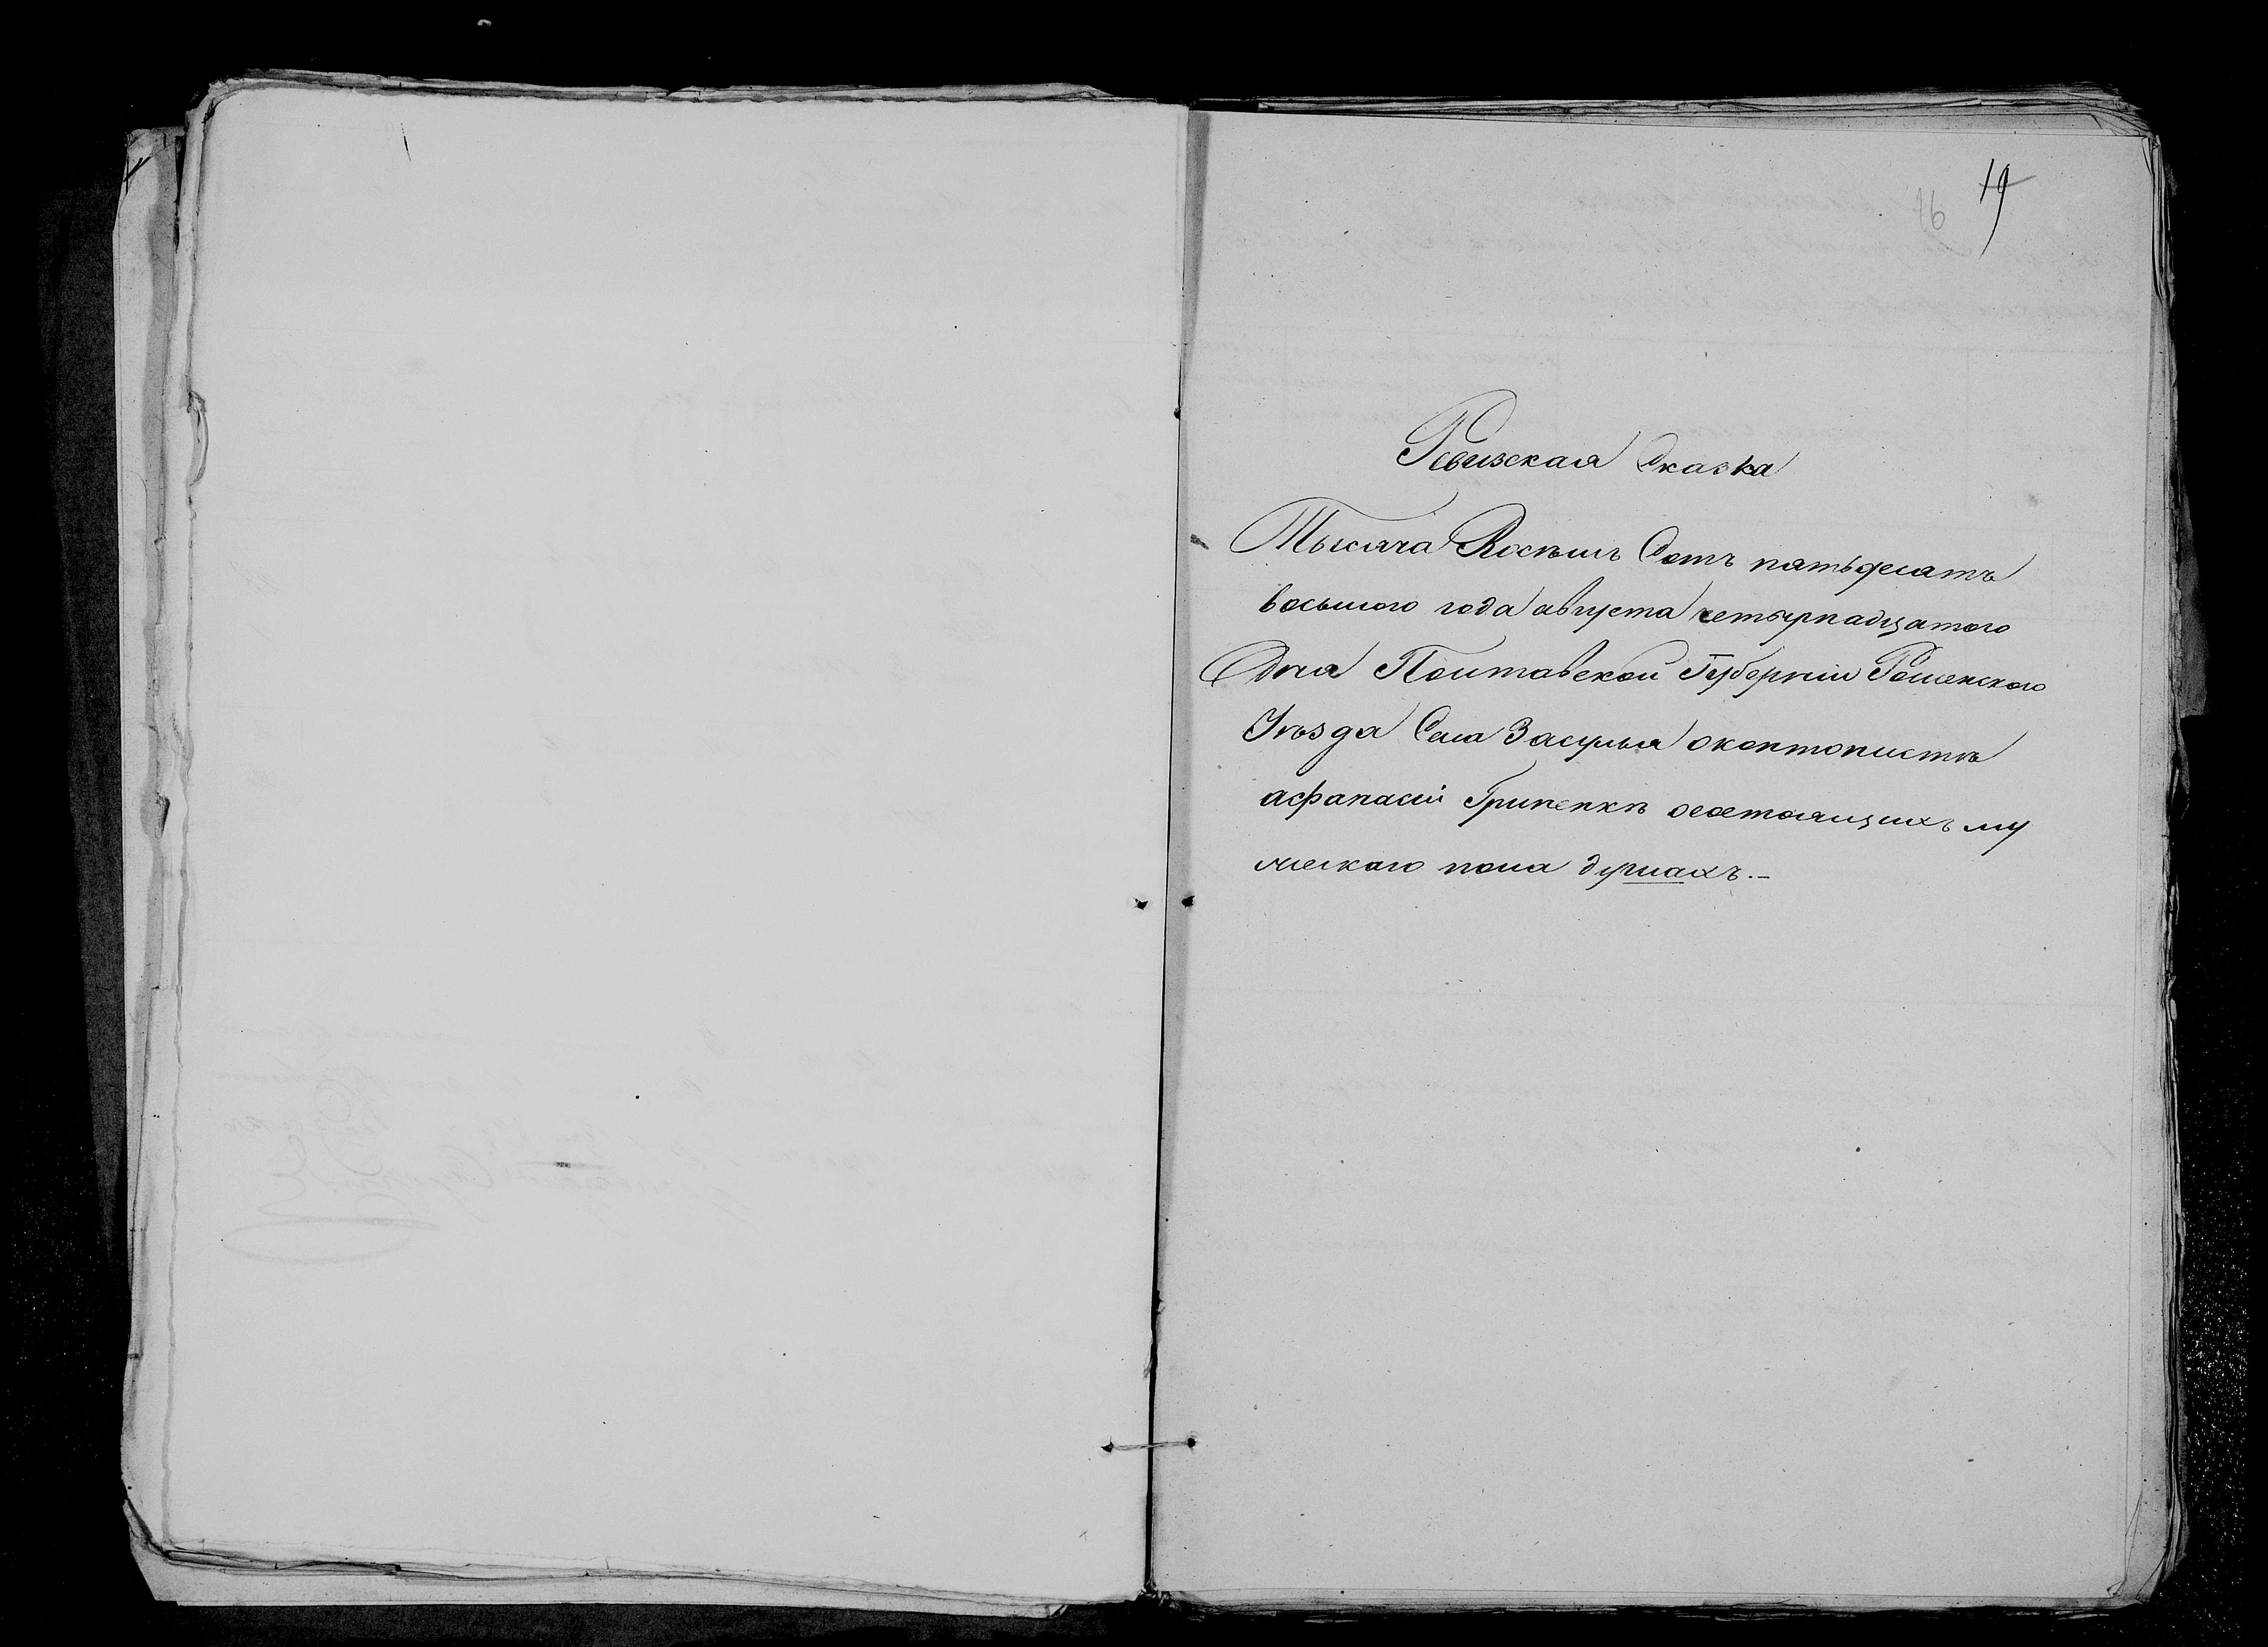 19
76
Ревизская Сказка
Тысяча Восемь Сотъ пятьдесятъ
восьмого года августа четырнадцатого
Дня Полтавской Губерніи Роменского
Уѣзда Села Засулья
афанасій состоящихъ му
жескаго пола душахъ.-